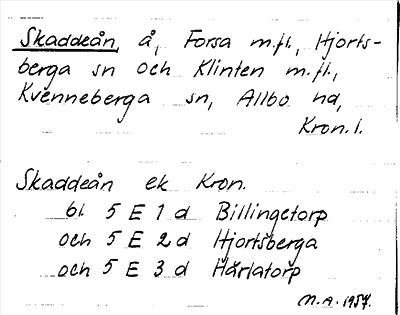 Skaddeån, å, Forsa m.fl., Hjorts-
berga sn och Klinten m.fl.,
Kvenneberga sn, Allbo hd,
Kron. l.
Skaddeån ek Kron.
bl 5 E 1 d Billingetorp
och 5 E 2 d Hjortsberga
och 5 E 3 d Härlatorp
M.A. 1957.